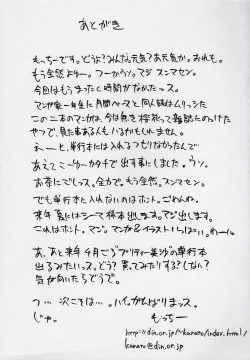 あとがき
もっちーです。どうよ?みんな元気?あ元気か。おれも。
もう全然よゆー。フーかウソ。マジ スンマセン。
今回はもうまったく時間がなかったッス。
マンガ家一年生に月間ペースと同人誌はムリッシた
この二本のマンガは、今は亡き 雑誌にのっけた
やつで、見た事ある人もいるかもしれません。
えーと、単行本には入れるつもりなかったんで
あえてこーゆーカタチで出す事にしました。ウソ。
お茶にごしッス。全力で。もう全然。スンマセン。
でも単行本に入んないのはホント。ごめんね。
来年 夏にはシーマ様本出します。マジ出します。
これはホント。マジ。マンガ&イラストいっぱい。わーい。
あ、あと来年4月ごろ“プリティー美沙の単行本
出るみたいッス。どう?買ってみたりする?しない?
気が向いたらどうぞ
つ… 次こそは…。ハイ。がんばりまっス。
じゃ。 もっちー
http://din.or.jp/~kanato/index.html/
kanato@din.or.jp